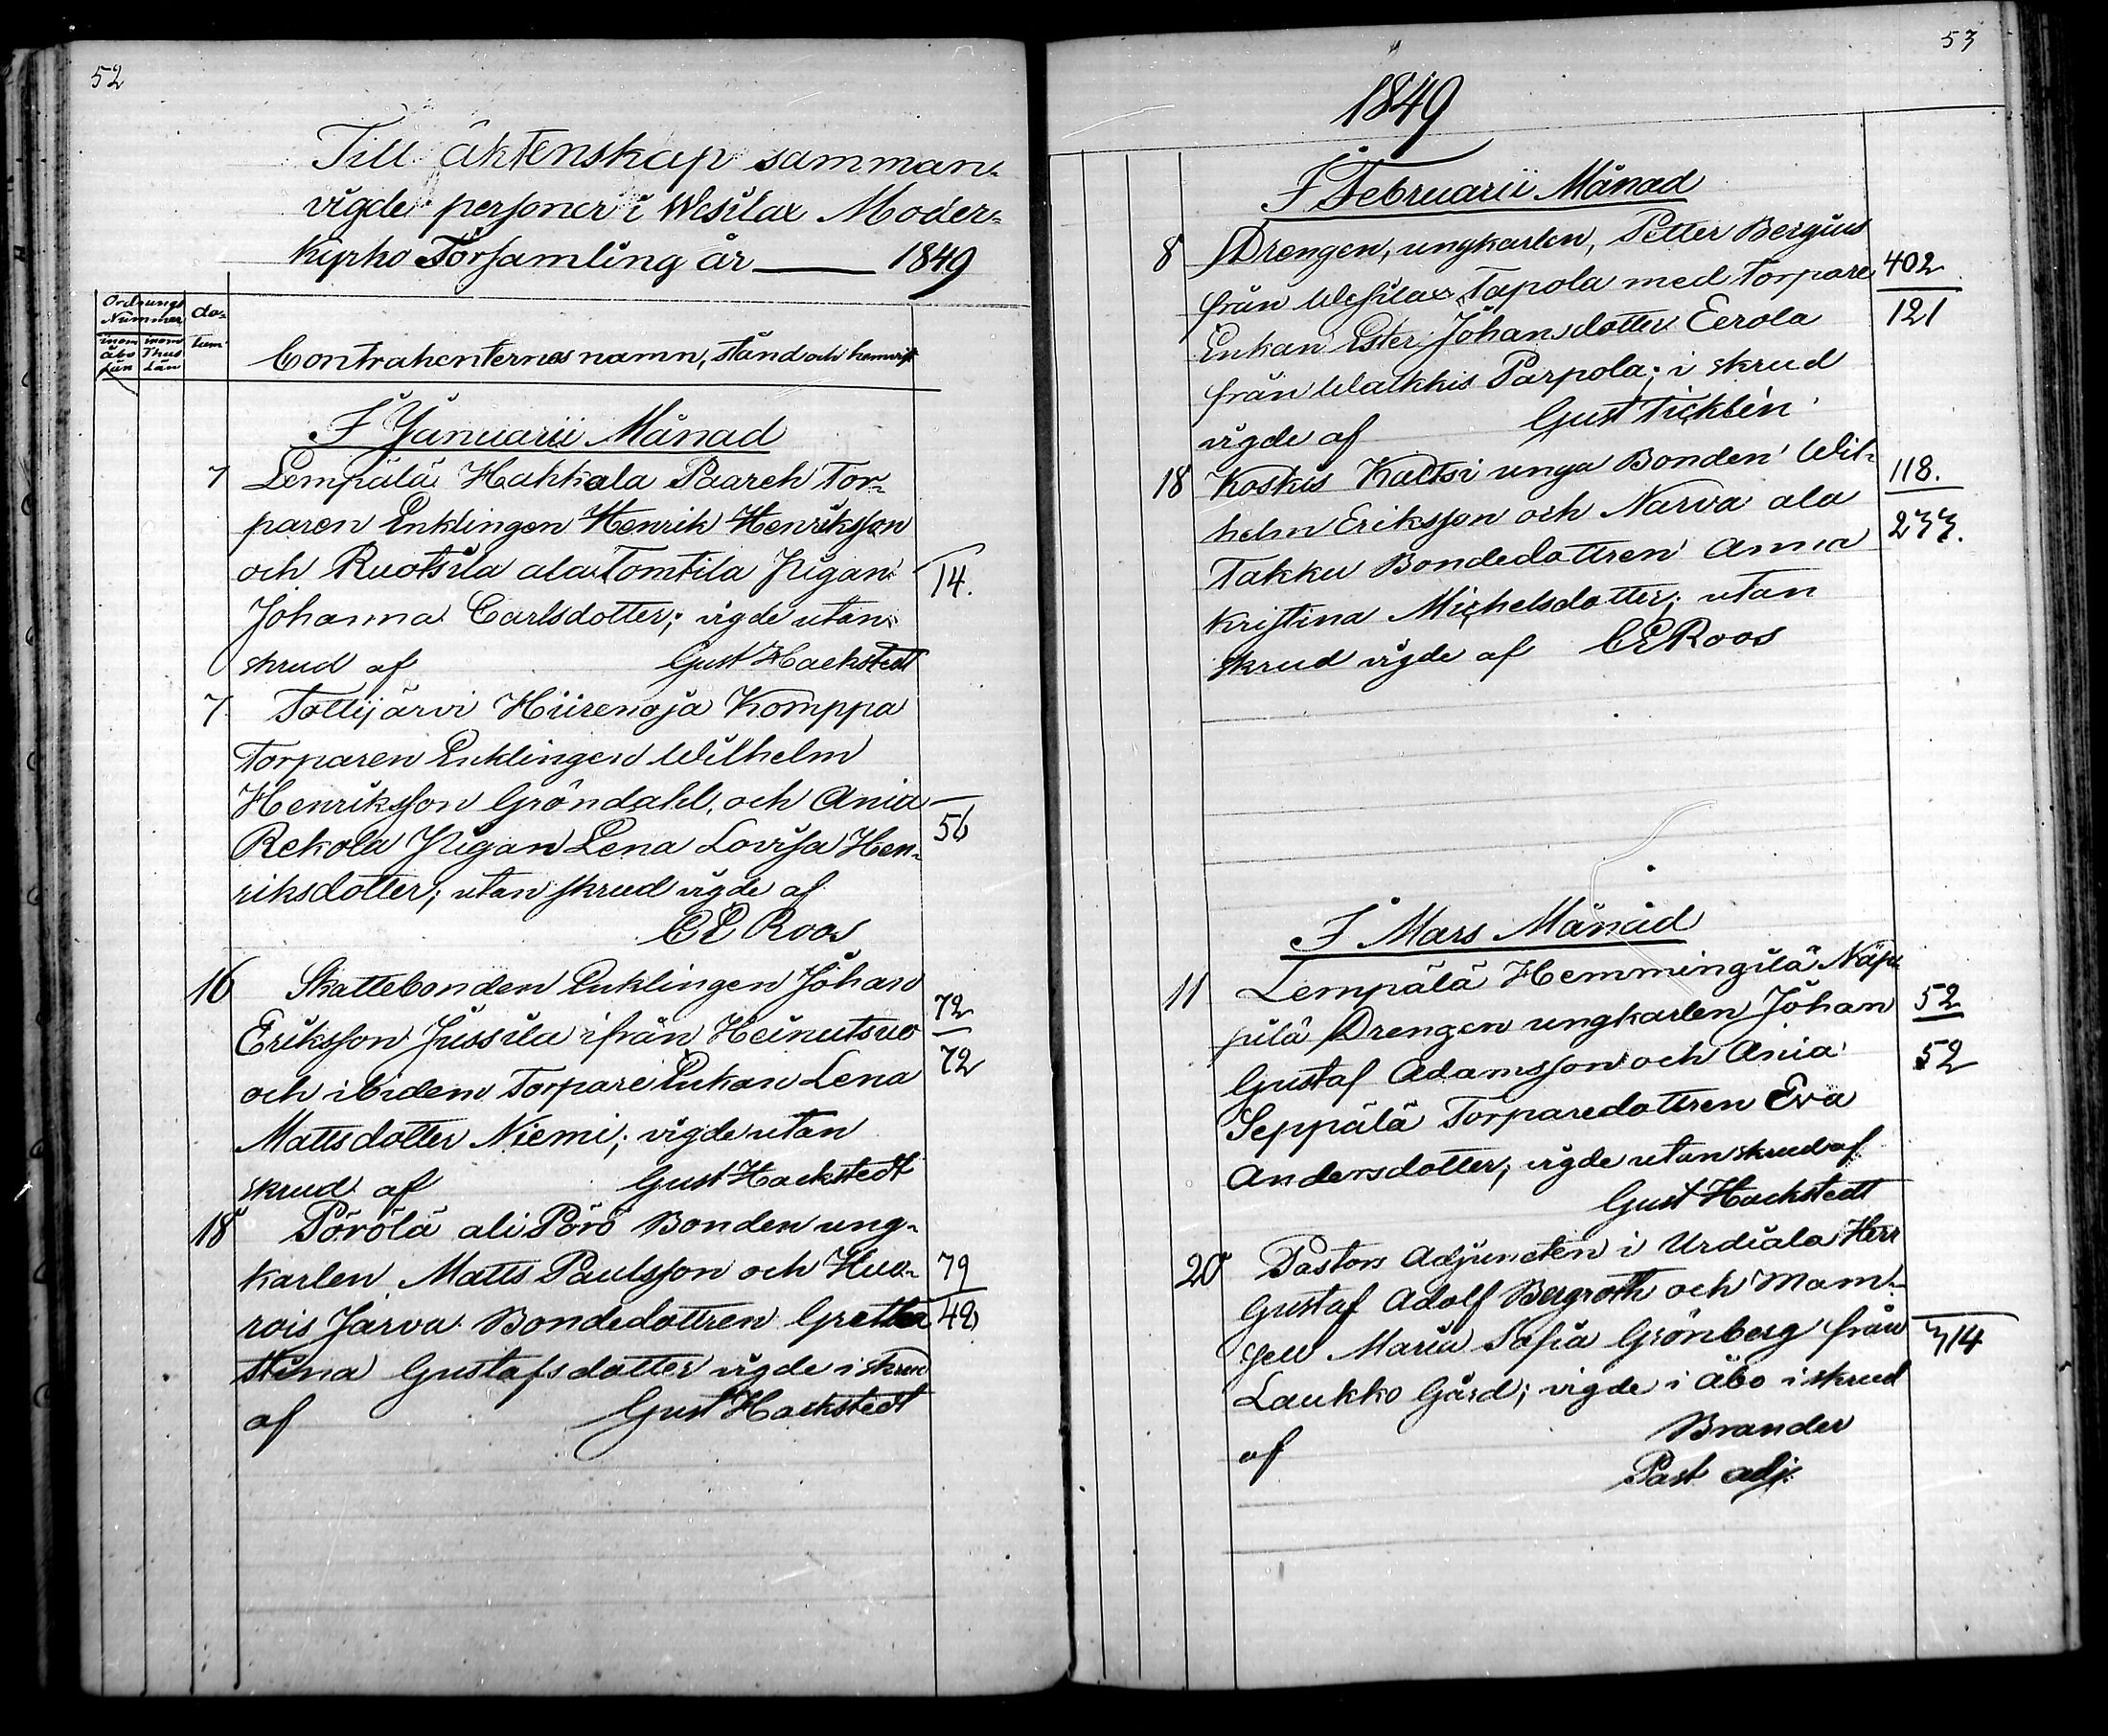 52
Till äktenskap samman-
vigde personer i Wesilax Moder-
kyrko Församling år — 1849
Ordnungs Nummer
da-
tum
inom Åbo Län
inom Thus Län
Contrahenternas namn, stånd och hemvist
I Januarii Månad
7 Lempälä Hakkala Paareh Tor-
paren Enklingen Henrik Henriksson
och Ruotsila ala Tomtila Pigan
14.
Johanna Carlsdotter; vigde utan
skrud af Gust Hackstedt
7. Tottijärvi Hiirenoja Komppa
Torparen Enklingen Wilhelm
Henriksson Gröndahl, och Ania
56
Rekola Pigan Lena Lovisa Hen-
riksdotter; utan skrud vigde af
CE Roos
16 Skattebonden Enklingen Johan
72
Eriksson Jussila ifrån Heinutsuo
72
och ibidem Torpare Enkan Lena
Mattsdotter Niemi; vigde utan
skrud af Gust Hackstedt
18 Pörölä ali Pörö Bonden ung-
karlen Matts Paulsson och Hua-
79
rois Jarva Bondedottren Gretha
42
Stina Gustafsdotter vigde i skrud
af Gust Hackstedt
53
1849
I Februarii Månad
8 Drengen, ungkarlen, Petter Bergius
402
från Wesilax Tapola med Torpare
121
Enkan Ester Johansdotter Eerola
från Walkkis Parpola; i skrud
vigde af Gust Ticklén
18 Koskis Kaltsi unga Bonden Wil-
118.
helm Eriksson och Narva ala
233.
Takku Bondedottren Anna
Kristina Michelsdotter; utan
skrud vigde af CE Roos
I Mars Månad
11 Lempälä Hemmingilä Näp-
pilä Drengen ungkarlen Johan
52
Gustaf Adamsson och Ania
52
Seppälä Torparedottren Eva
Andersdotter; vigde utan skrud af
Gust Hackstedt
20 Pastors Adjuncten i Urdiala Herr
Gustaf Adolf Bergroth och Mam-
sell Maria Sofia Grönberg från
314
Laukko Gård; vigde i Åbo i skrud
af Brander
Past adj.